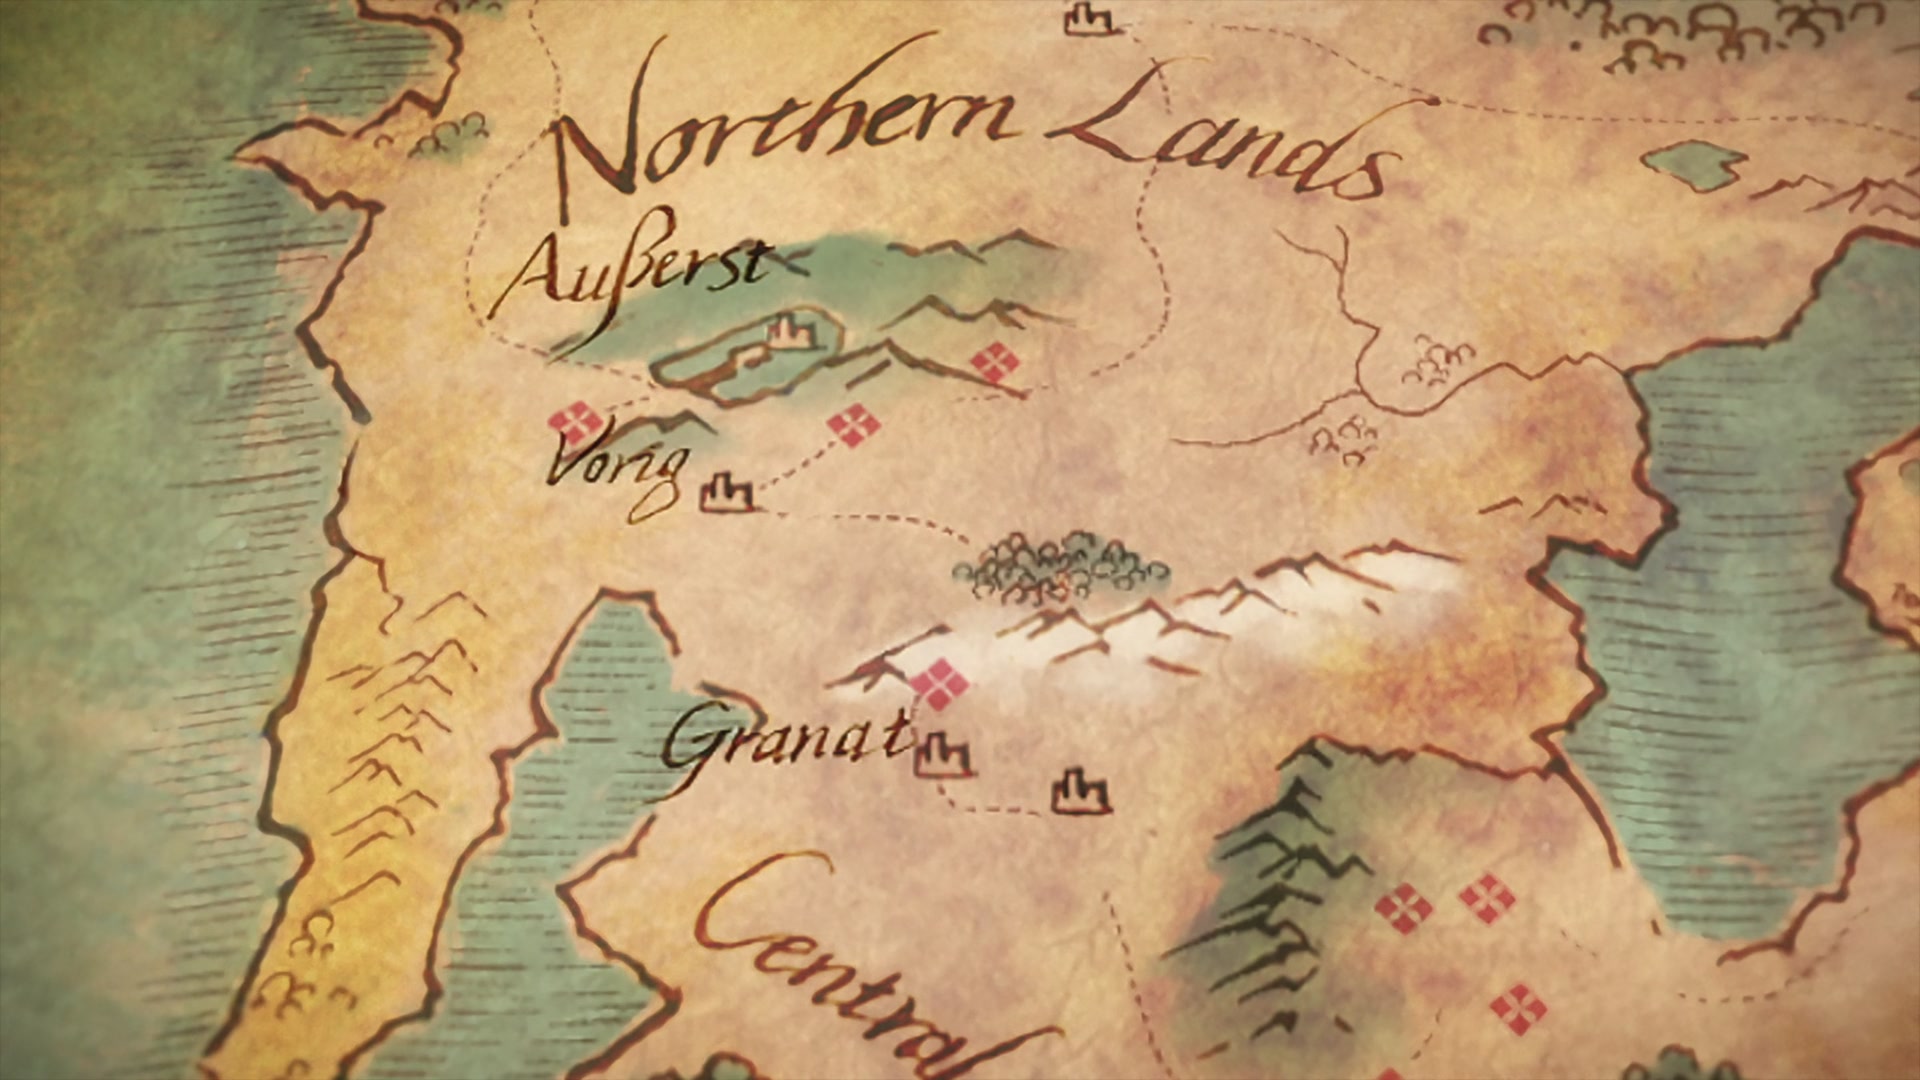 Northern Lands
Außerst
Vorig
Granat
Central